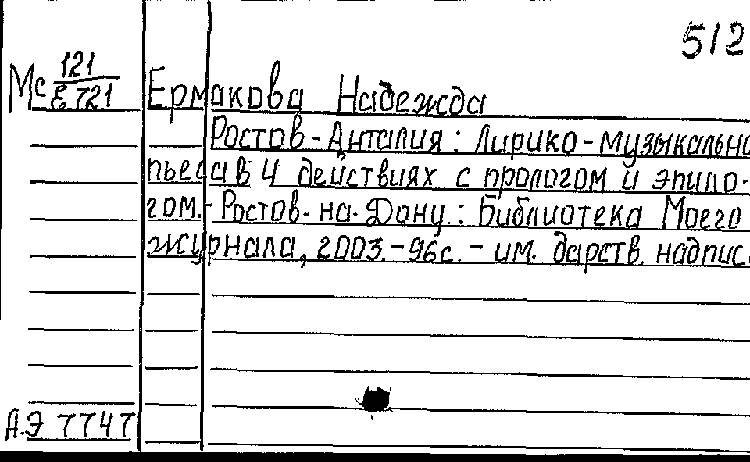 512
Мс 121
Е 721
Ермакова Надежда
Ростов-Анталия: Лирико-музыкально
пьеса в 4 действиях с прологом и эпило-
гом.-Ростов-на-Дону: Библиотека Моего
журнала, 2003.-96с.-им. дарств. надпис.
А.Э 7747